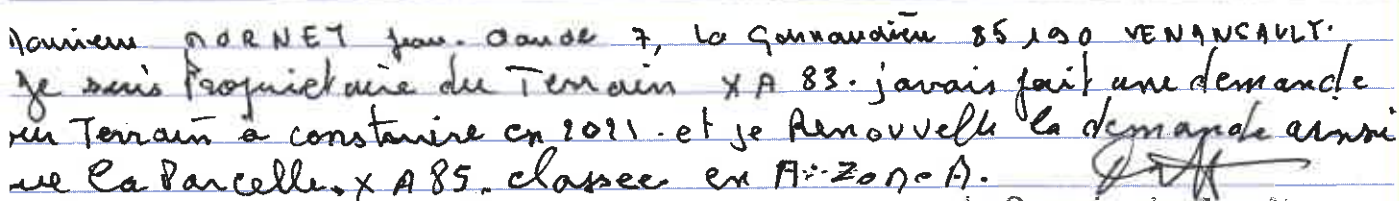 Monsieur MORNET Jean-Claude 7, La Gonnaudière 85190 VENANSAULT.
Je suis Propriétaire du Terrain XA 83. j'avais fait une demande
en Terrain à construire en 2021. et je Renouvelle la demande ainsi
que la Parcelle. XA85. classée en A: Zone A.